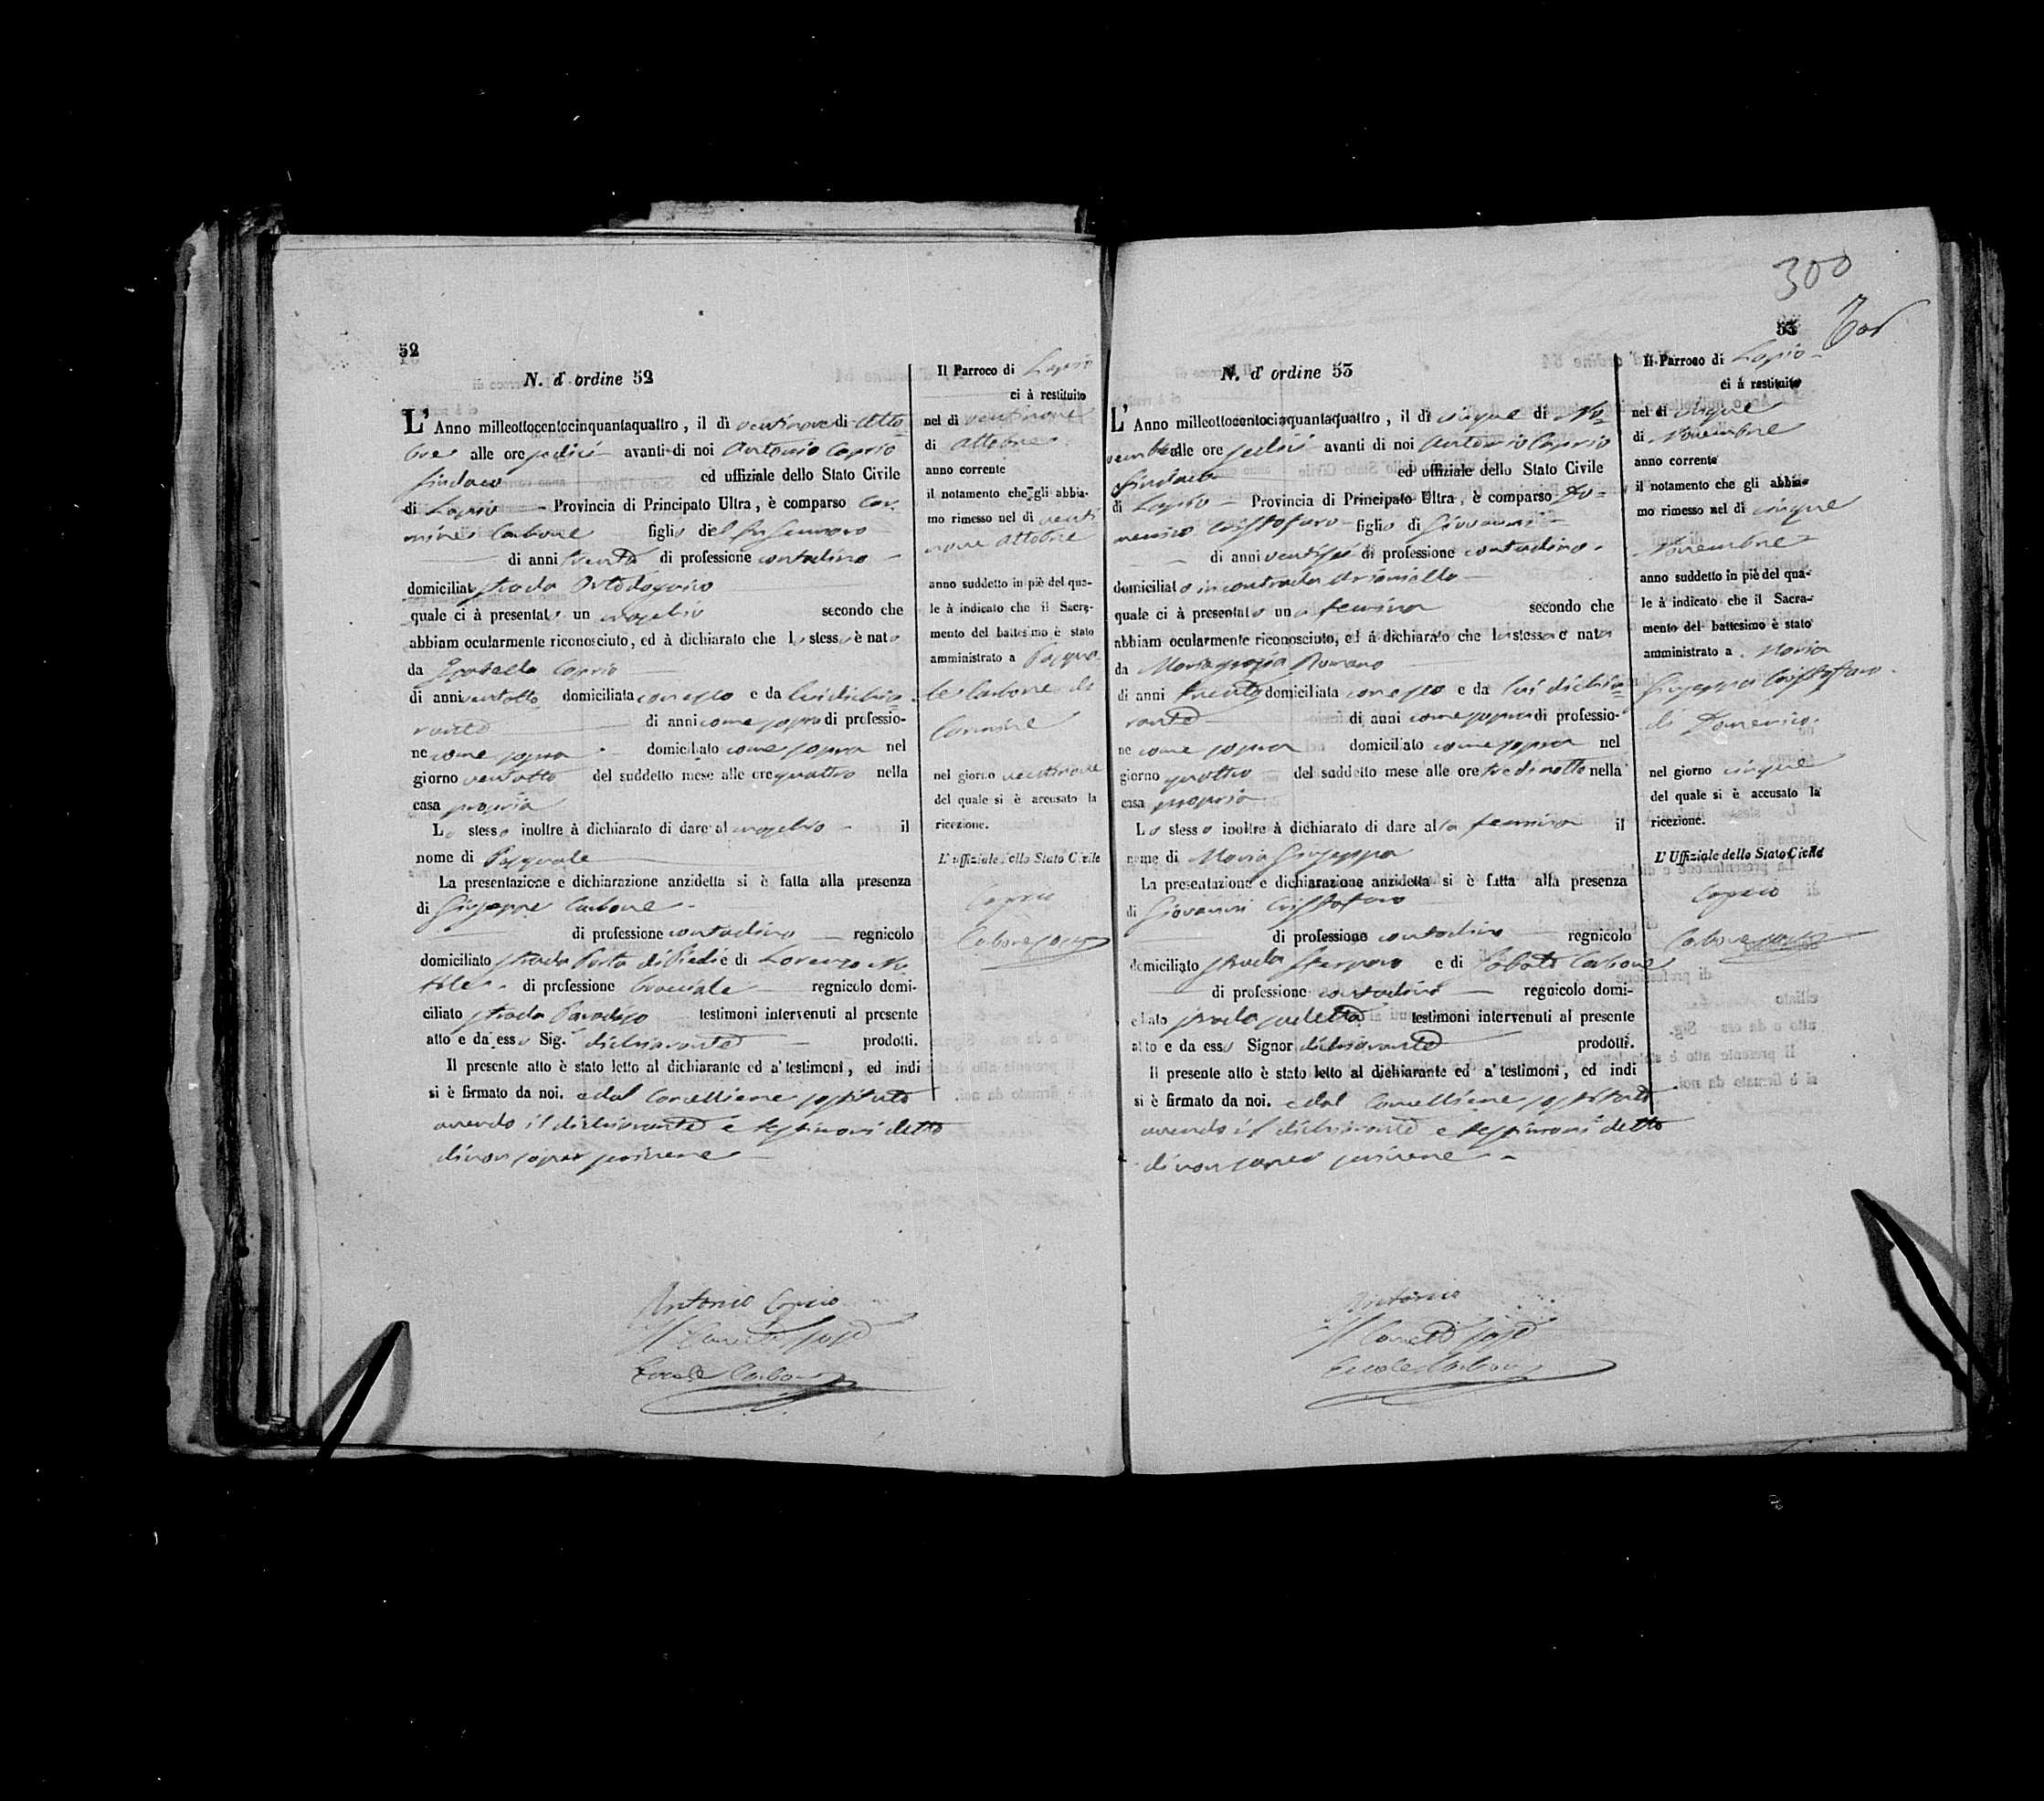 52
N. d' ordine 52
L' Anno milleottocentocinquantaquattro, il di ventinove di Otto=
bre alle ore sedici avanti di noi Antonio Caprio
Sindaco ed uffiziale dello Stato Civile
di Lapio Provincia di Principato Ultra, è comparso Car=
mine Carbone figlio del fu Gennaro
di anni trenta di professione contadino
domiciliat strada
quale ci à presentato un maschio secondo che
abbiam ocularmente riconosciuto, ed à dichiarato che lo stesso è nato
da Isabella Caprio
di anni ventotto domiciliata con esso e da lui dichia=
rante di anni come sopra di professio-
ne come sopra domiciliato come sopra nel
giorno ventotto del suddetto mese alle ore quattro nella
casa propria
Lo stesso inoltre à dichiarato di dare al maschio il
nome di Pasquale
La presentazione e dichiarazione anzidetta si è fatta alla presenza
di Giuseppe Carbone
di professione contadino regnicolo
domiciliato strada Porta di Piedi e di Lorenzo
di professione bracciale regnicolo domi-
ciliato strada Paradiso testimoni intervenuti al presente
atto e da esso Sig. dichiarante prodotti.
Il presente atto è stato letto al dichiarante ed a' testimoni, ed indi
si è firmato da noi. e dal Cancelliere sostituto
avendo il dichiarante e testimoni detto
di non saper scrivere
Antonio Caprio
Il Cancell. sost.
Ercole Carbone
Il Parroco di Lapio
ci à restituito
nel di ventinove
di Ottobre
anno corrente
il notamento che gli abbia-
mo rimesso nel di venti
nove Ottobre
anno suddetto in piè del qua-
le à indicato che il Sacra-
mento del battesimo è stato
amministrato a Pasqua
le Carbone di
Carmine
nel giorno ventinove
del quale si è accusato la
ricezione.
L' uffiziale dello Stato Civile
Caprio
Carbone sost.
300
53
N. d' ordine 53
L' Anno milleottocentocinquantaquattro, il di cinque di No=
vembre alle ore sedici avanti di noi Antonio Caprio
Sindaco ed uffiziale dello Stato Civile
di Lapio Provincia di Principato Ultra, è comparso Do=
menico Cristofaro figlio di Giovanni
di anni ventisei di professione contadino
domiciliato in contrada Arianiello
quale ci à presentato una femina secondo che
abbiam ocularmente riconosciuto, ed à dichiarato che la stessa è nata
da Mariagrazia Romano
di anni trenta domiciliata con esso e da lui dichia=
rante di anni come sopra di professio-
ne come sopra domiciliato come sopra nel
giorno quattro del suddetto mese alle ore tre di notte nella
casa propria
Lo stesso inoltre à dichiarato di dare alla femina il
nome di Maria Giuseppa
La presentazione e dichiarazione anzidetta si è fatta alla presenza
di Giovanni Cristofaro
di professione contadino regnicolo
domiciliato strada e di Sabato Carbone
di professione contadino regnicolo domi-
ciliato strada sudetta testimoni intervenuti al presente
atto e da esso Signor dichiarante prodotti.
Il presente atto è stato letto al dichiarante ed a' testimoni, ed indi
si è firmato da noi. e dal Cancelliere sostituto
avendo il dichiarante e testimoni detto
di non saper scrivere
Antonio
Il Cancell. sost.
Ercole Carbone
Il Parroco di Lapio
ci à restituito
nel di cinque
di Novembre
anno corrente
il notamento che gli abbia-
mo rimesso nel di cinque
Novembre
anno suddetto in piè del qua-
le à indicato che il Sacra-
mento del battesimo è stato
amministrato a Maria
Giuseppa Cristofaro
di Domenico
nel giorno cinque
del quale si è accusato la
ricezione.
L' Uffiziale dello Stato Civile
Caprio
Carbone sost.